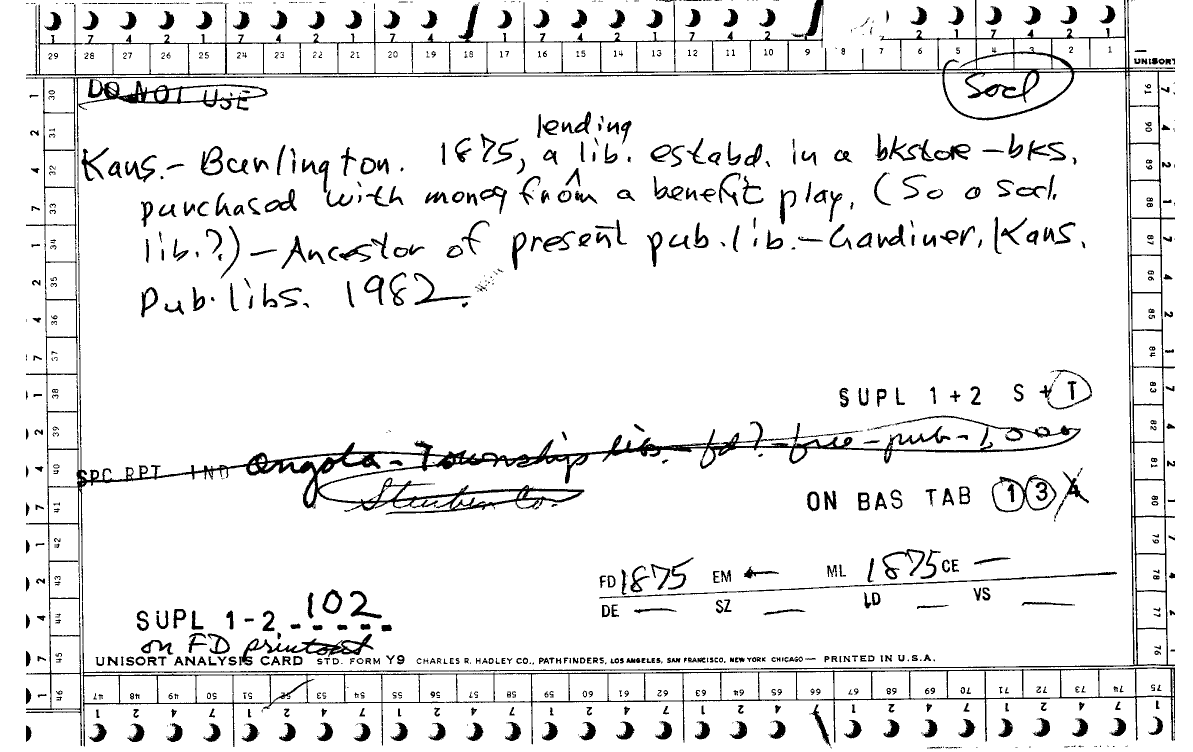 1 7 4 2 1 7 4 2 1 7 4 2 1 7 4 2 1 7 4 2 1 7 4 2 1
29 28 27 26 25 24 23 22 21 20 19 18 17 16 15 14 13 12 11 10 9 8 7 6 5 4 3 2 1
UNISORT
DO NOT USE
Socl
lending
Kans.- Burlington. 1875, a ^ lib. estabd. in a bkstore - bks.
purchased with money from a benefit play. (So a socl.
lib.?) - Ancestor of present pub. lib. - Gardiner, Kans.
Pub. libs. 1982.
SUPL 1+2 S + T
SPC RPT IND Angola - Township lib. - fd? - free - pub - 1,000
Steuben Co.
ON BAS TAB 1 3 4
FD 1875 EM ← ML 1875 CE —
DE — SZ — LD — VS —
SUPL 1-2 102
on FD printout
UNISORT ANALYSIS CARD STD. FORM Y9 CHARLES R. HADLEY CO., PATHFINDERS, LOS ANGELES, SAN FRANCISCO, NEW YORK CHICAGO — PRINTED IN U.S.A.
47 48 49 50 51 52 53 54 55 56 57 58 59 60 61 62 63 64 65 66 67 68 69 70 71 72 73 74 75